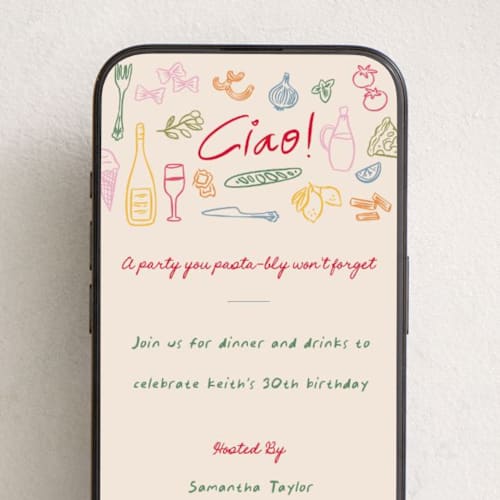 Ciao!
A party you pasta-bly won't forget
Join us for dinner and drinks to
celebrate Keith's 30th birthday
Hosted By
Samantha Taylor